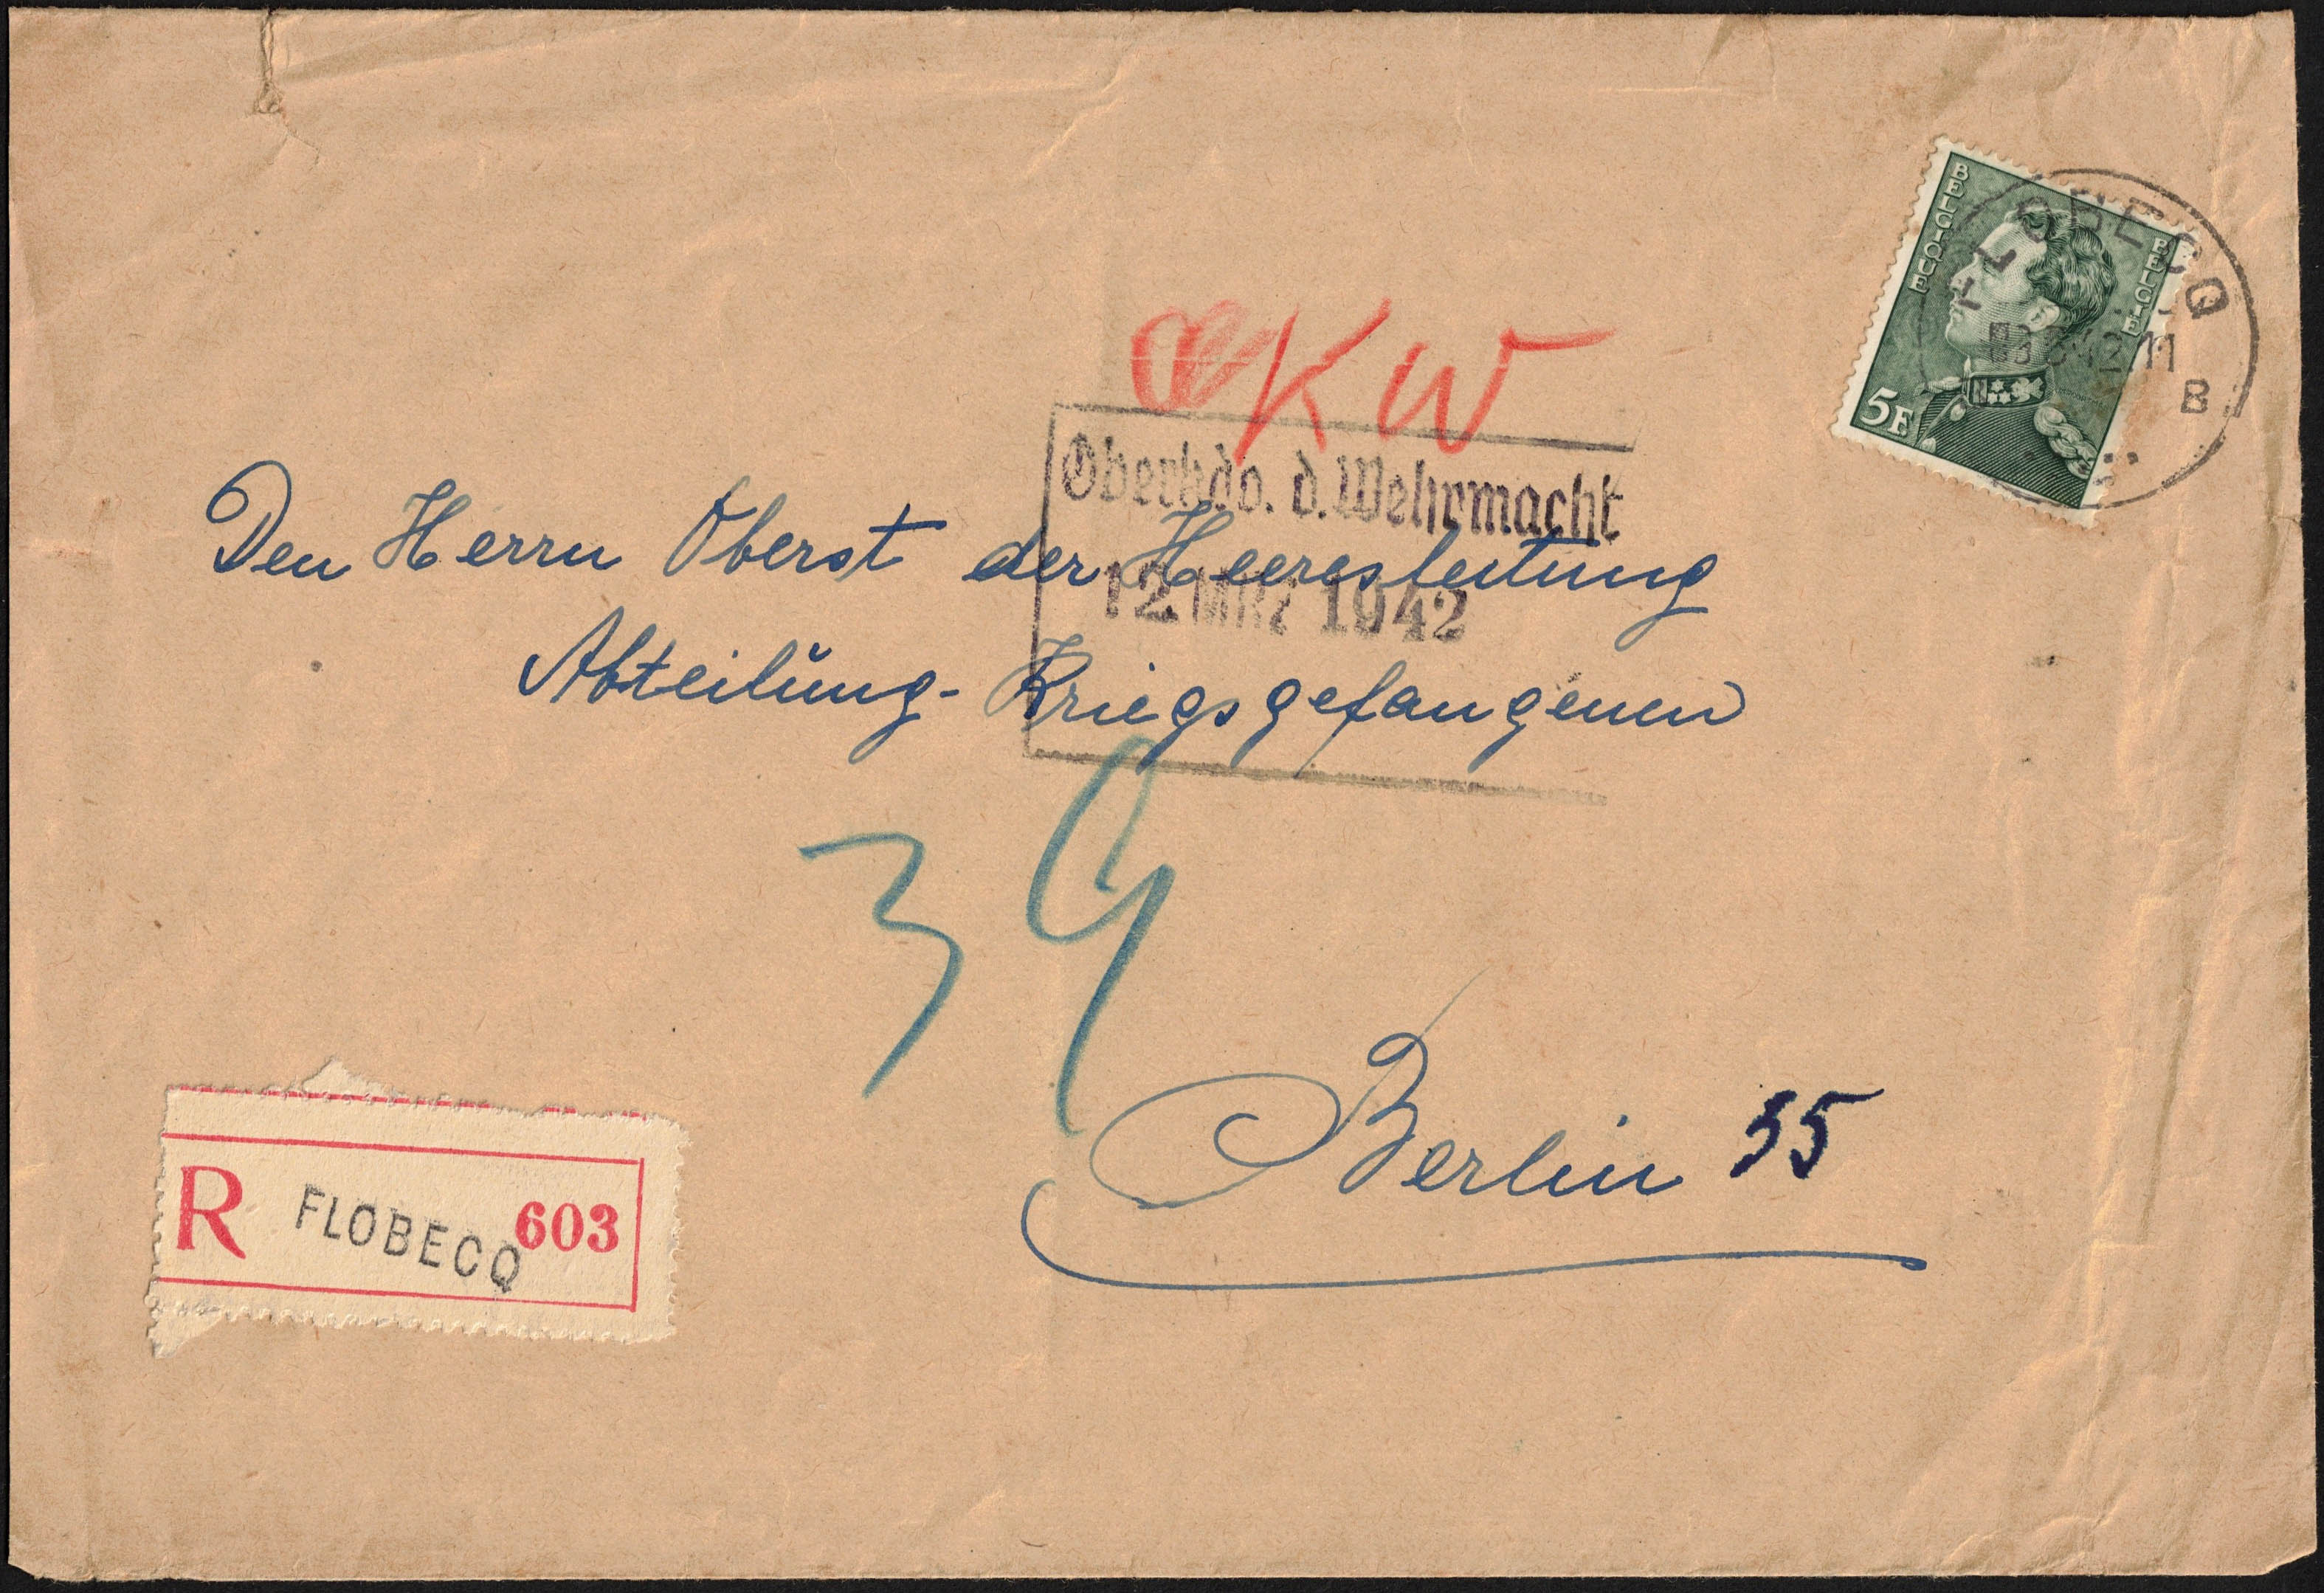 BELGIQUE
BELGIE
5F
FLOBECQ
42.11
B
OKW
Oberkdo. d. Wehrmacht
12 MRZ 1942
Den Herrn Oberst der Heeresleitung
Abteilŭng- Kriegsgefangenen
39
Berlin 35
R FLOBECQ 603